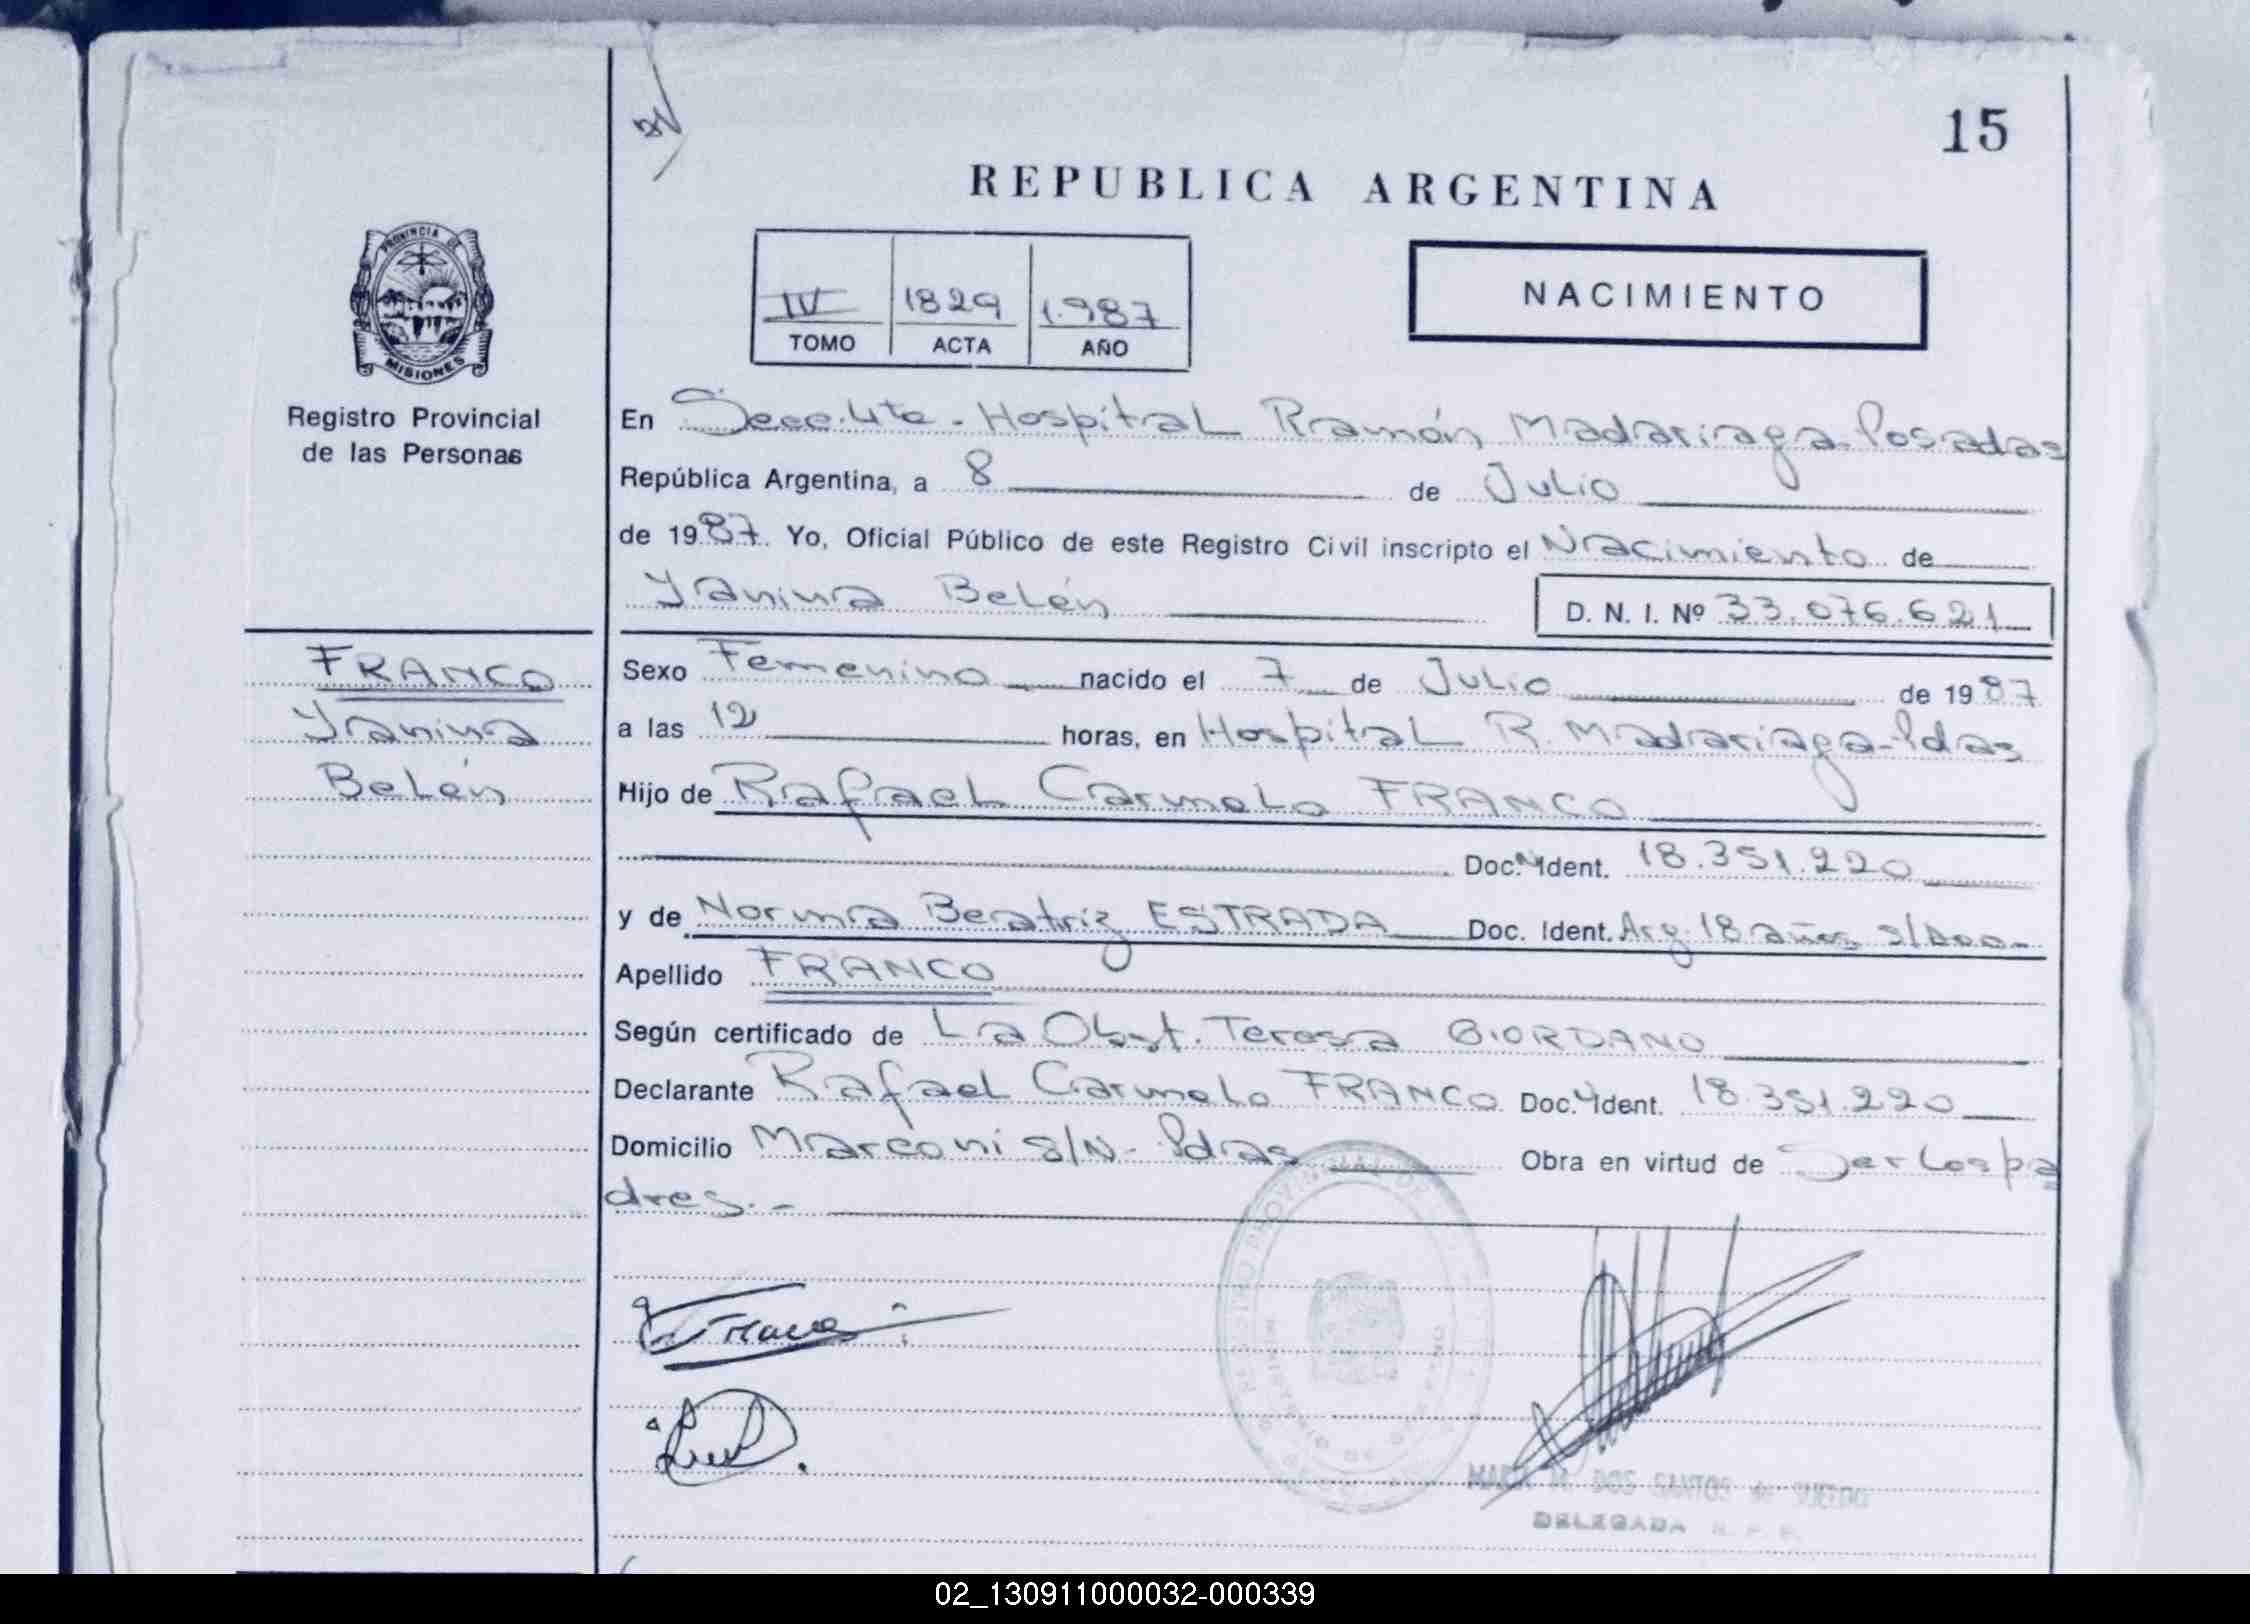 15
REPUBLICA ARGENTINA
PROVINCIA DE
MISIONES
Registro Provincial
de las Personas
IV 1829 1.987
TOMO ACTA AÑO
NACIMIENTO
En Secc. 4ta - Hospital Ramón Madariaga - Posadas
República Argentina, a 8 de Julio
de 1987. Yo, Oficial Público de este Registro Civil inscripto el Nacimiento de
Yanina Belén D. N. I. Nº 33.076.621
FRANCO
Yanina
Belén
Sexo Femenino nacido el 7 de Julio de 1987
a las 12 horas, en Hospital R. Madariaga - Pdas
Hijo de Rafael Carmelo FRANCO
Doc. N Ident. 18.351.220
y de Norma Beatriz ESTRADA Doc. Ident. Arg. 18 años s/Doc-
Apellido FRANCO
Según certificado de La Obst. Teresa GIORDANO
Declarante Rafael Carmelo FRANCO Doc. Ident. 18.351.220
Domicilio Marconi S/N - Pdas Obra en virtud de Ser los pa
dres.-
DELEGADA R. P. P.
02_130911000032-000339